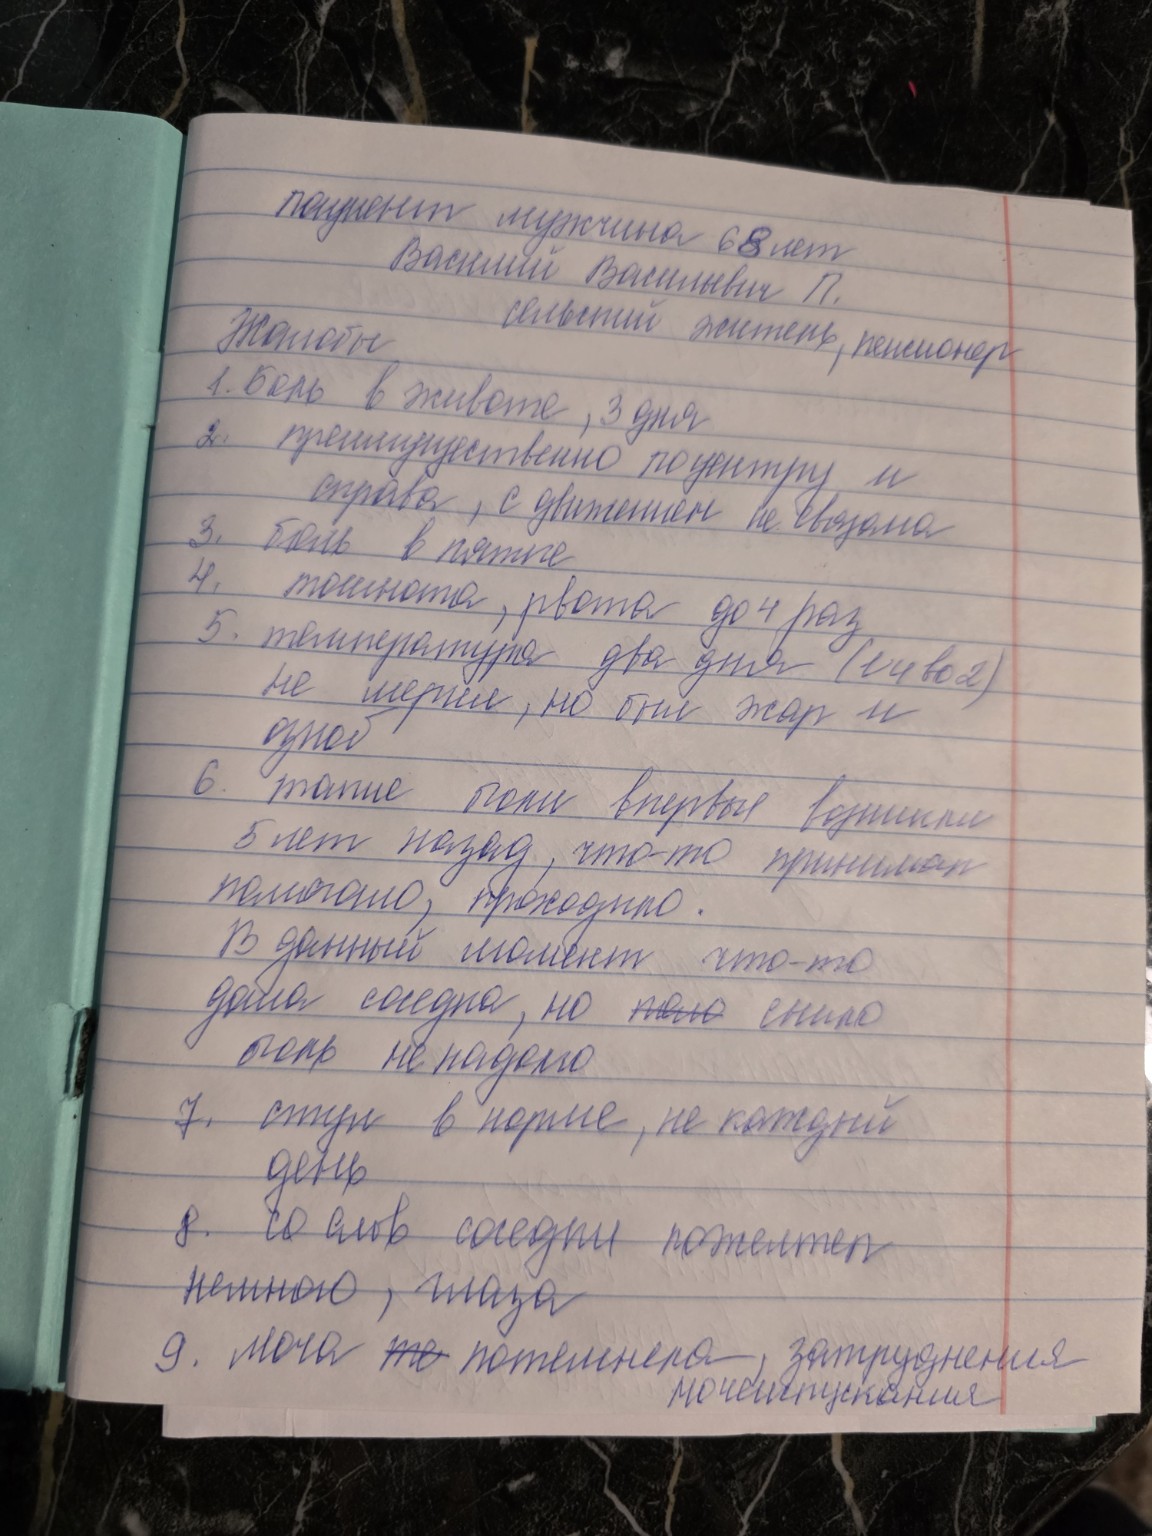 пациент мужчина 68 лет
Василий Васильевич П.
сельский житель, пенсионер
Жалобы
1. боль в животе, 3 дня
2. преимущественно по центру и
справа, с движением не связана
3. боль в пятке
4. тошнота, рвота до 4 раз
5. температура два дня (1 и 2)
не мерил, но был жар и
озноб
6. такие боли впервые возникли
5 лет назад, что-то принимал
помогало, проходило.
В данный момент что-то
дала соседка, но сняло
боль не надолго
7. стул в норме, не каждый
день
8. со слов соседки пожелтел
немного, глаза
9. моча потемнела, затруднения
мочеиспускания